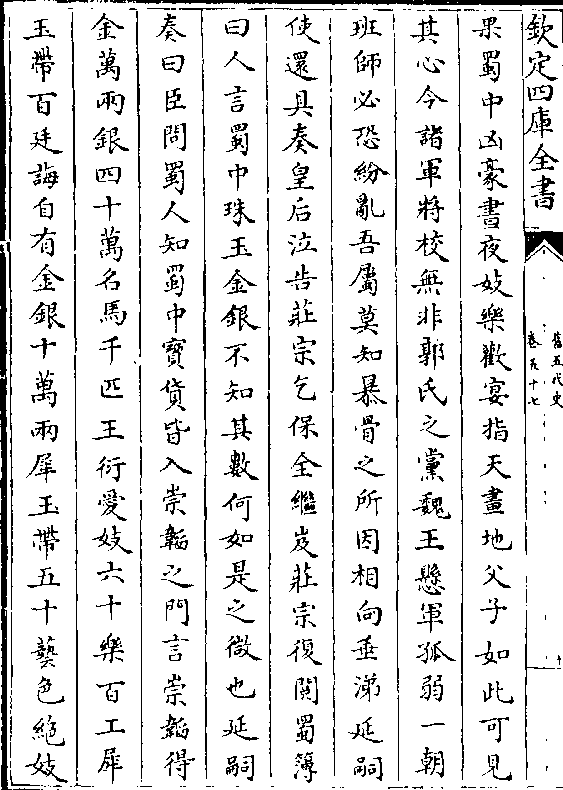 欽定四庫全書
舊五代史
卷五十七
果蜀中凶豪晝夜妓樂歡宴指天畫地父子如此可見
其心今諸軍將校無非郭氏之黨魏王懸軍孤弱一朝
班師必恐紛亂吾屬莫知暴骨之所因相向垂涕延嗣
使還具奏皇后泣告莊宗乞保全繼岌莊宗復閱蜀簿
曰人言蜀中珠玉金銀不知其數何如是之微也延嗣
奏曰臣問蜀人知蜀中寶貨皆入崇韜之門言崇韜得
金萬兩銀四十萬名馬千匹王衍愛妓六十樂百工犀
玉帶百廷誨自有金銀十萬兩犀玉帶五十藝色絕妓